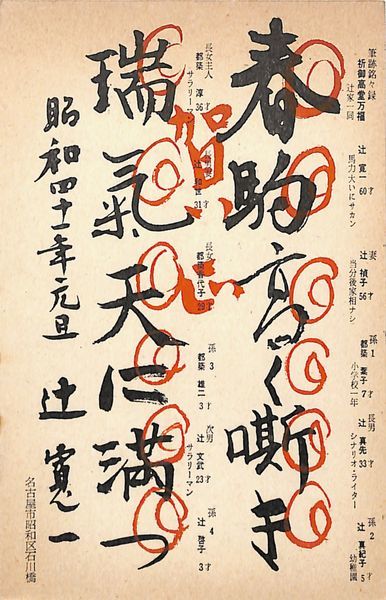 筆跡銘々録
祈御高堂万福
辻家一同
辻 寛一 60才
馬力大いにサカン
妻
辻 禎子 56才
当分後家相ナシ
孫1
都築 葉子 7才
小学校一年
長男
辻 真先 33才
シナリオ・ライター
孫2
辻 真紀子 5才
幼稚園
春駒高く嘶き
賀
長女主人
都築 淳 36才
サラリーマン
31才
長女
孫3
都築 雄二 3才
次男
辻 文武 23才
サラリーマン
孫4
辻 啓子 3才
瑞氣天に満つ
昭和四十一年元旦
辻 寛一
名古屋市昭和区石川橋